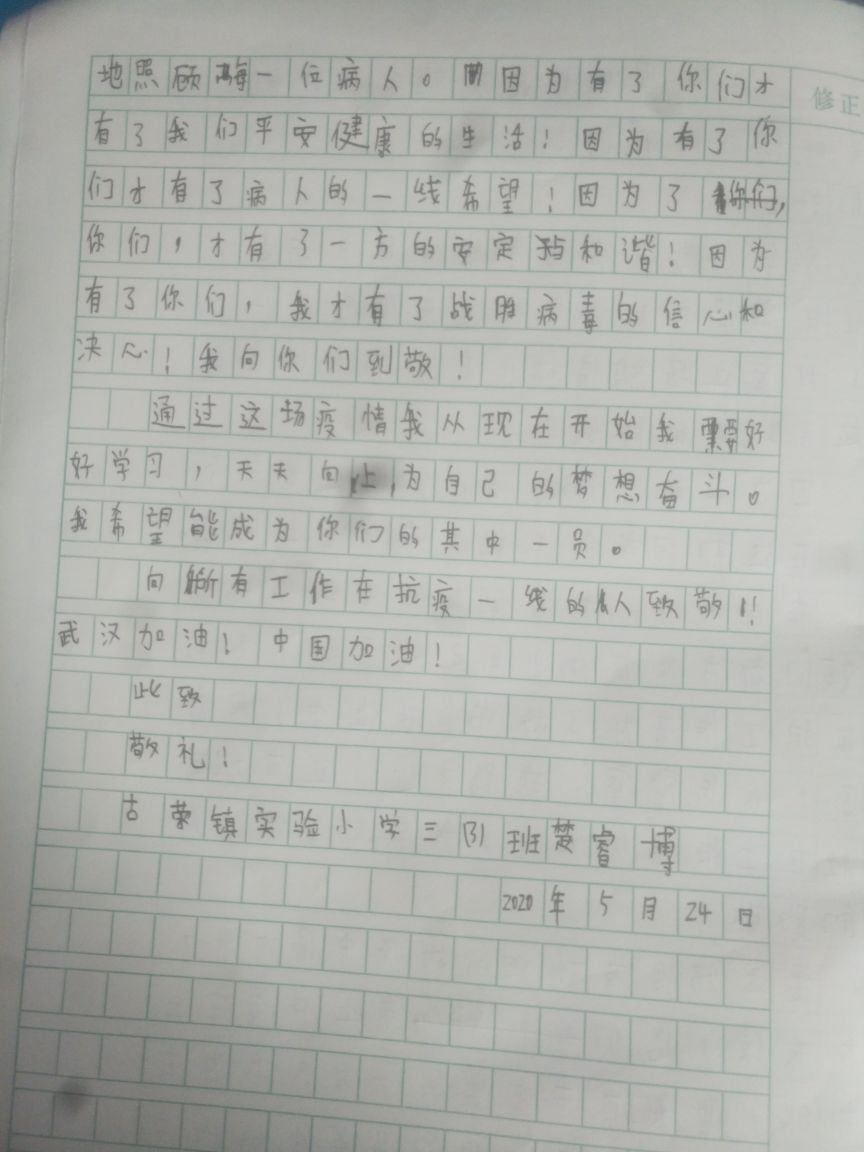 地照顾每一位病人。因为有了你们才
修正
有了我们平安健康的生活！因为有了你
们才有了病人的一线希望！因为了
你们，才有了一方的安定和谐！因为
有了你们，我才有了战胜病毒的信心和
决心！我向你们到敬！
通过这场疫情我从现在开始我要好
好学习，天天向上，为自己的梦想奋斗。
我希望能成为你们的其中一员。
向所有工作在抗疫一线的人致敬！！
武汉加油！中国加油！
此致
敬礼！
古荥镇实验小学三（3）班楚睿博
2020年5月24日